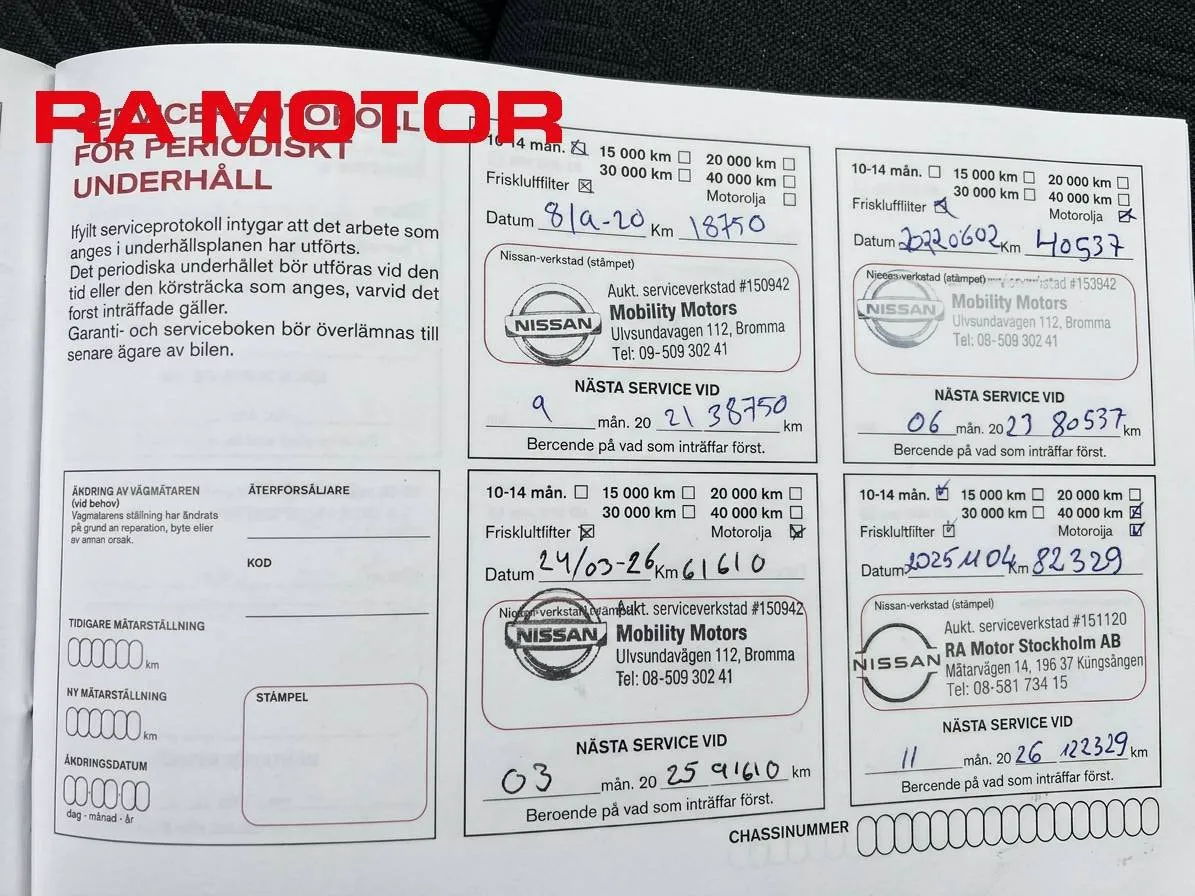 RA MOTOR
SERVICEPROTOKOLL
FÖR PERIODISKT
UNDERHÅLL
Ifyilt serviceprotokoll intygar att det arbete som
anges i underhållsplanen har utförts.
Det periodiska underhållet bör utföras vid den
tid eller den körsträcka som anges, varvid det
forst inträffade gäller.
Garanti- och serviceboken bör överlämnas till
senare ägare av bilen.
10-14 mån. 15 000 km 20 000 km
30 000 km 40 000 km
Friskluffilter Motorolja
Datum 8/9-20 Km 18750
Nissan-verkstad (stämpet)
NISSAN
Aukt. serviceverkstad #150942
Mobility Motors
Ulvsundavagen 112, Bromma
Tel: 09-509 302 41
NÄSTA SERVICE VID
9 mån. 20 21 38750 km
Bercende på vad som inträffar först.
10-14 mån. 15 000 km 20 000 km
30 000 km 40 000 km
Friskluffilter Motorolja
Datum 20220602 Km 40537
(atämpet) #153942
NISSAN
Mobility Motors
Ulvsundavägen 112, Bromma
Tel: 08-509 302 41
NÄSTA SERVICE VID
06 mån. 20 23 80537 km
Beroende på vad som inträffar först.
ÄKDRING AV VÄGMÄTAREN
(vid behov)
Vagmatarens ställning har åndrats
på grund an reparation, byte eller
av annan orsak.
ÅTERFORSÄLJARE
KOD
TIDIGARE MÄTARSTÄLLNING
km
NY MÄTARSTÄLLNING
km
ÄKDRINGSDATUM
dag - månad - år
STÄMPEL
10-14 mån. 15 000 km 20 000 km
30 000 km 40 000 km
Frisklultfilter Motorolja
Datum 24/03-26 Km 61610
NISSAN
Aukt. serviceverkstad #150942
Mobility Motors
Ulvsundavägen 112, Bromma
Tel: 08-509 302 41
NÄSTA SERVICE VID
03 mån. 20 25 91610 km
Beroende på vad som inträffar först.
10-14 mån. 15 000 km 20 000 km
30 000 km 40 000 km
Frisklutfilter Motoroija
Datum 20251104 Km 82329
Nissan-verkstad (stämpel)
NISSAN
Aukt. serviceverkstad #151120
RA Motor Stockholm AB
Mätarvägen 14, 196 37 Küngsången
Tel: 08-581 734 15
NÄSTA SERVICE VID
11 mån. 20 26 122329 km
Bercende på vad som inträffar först.
CHASSINUMMER